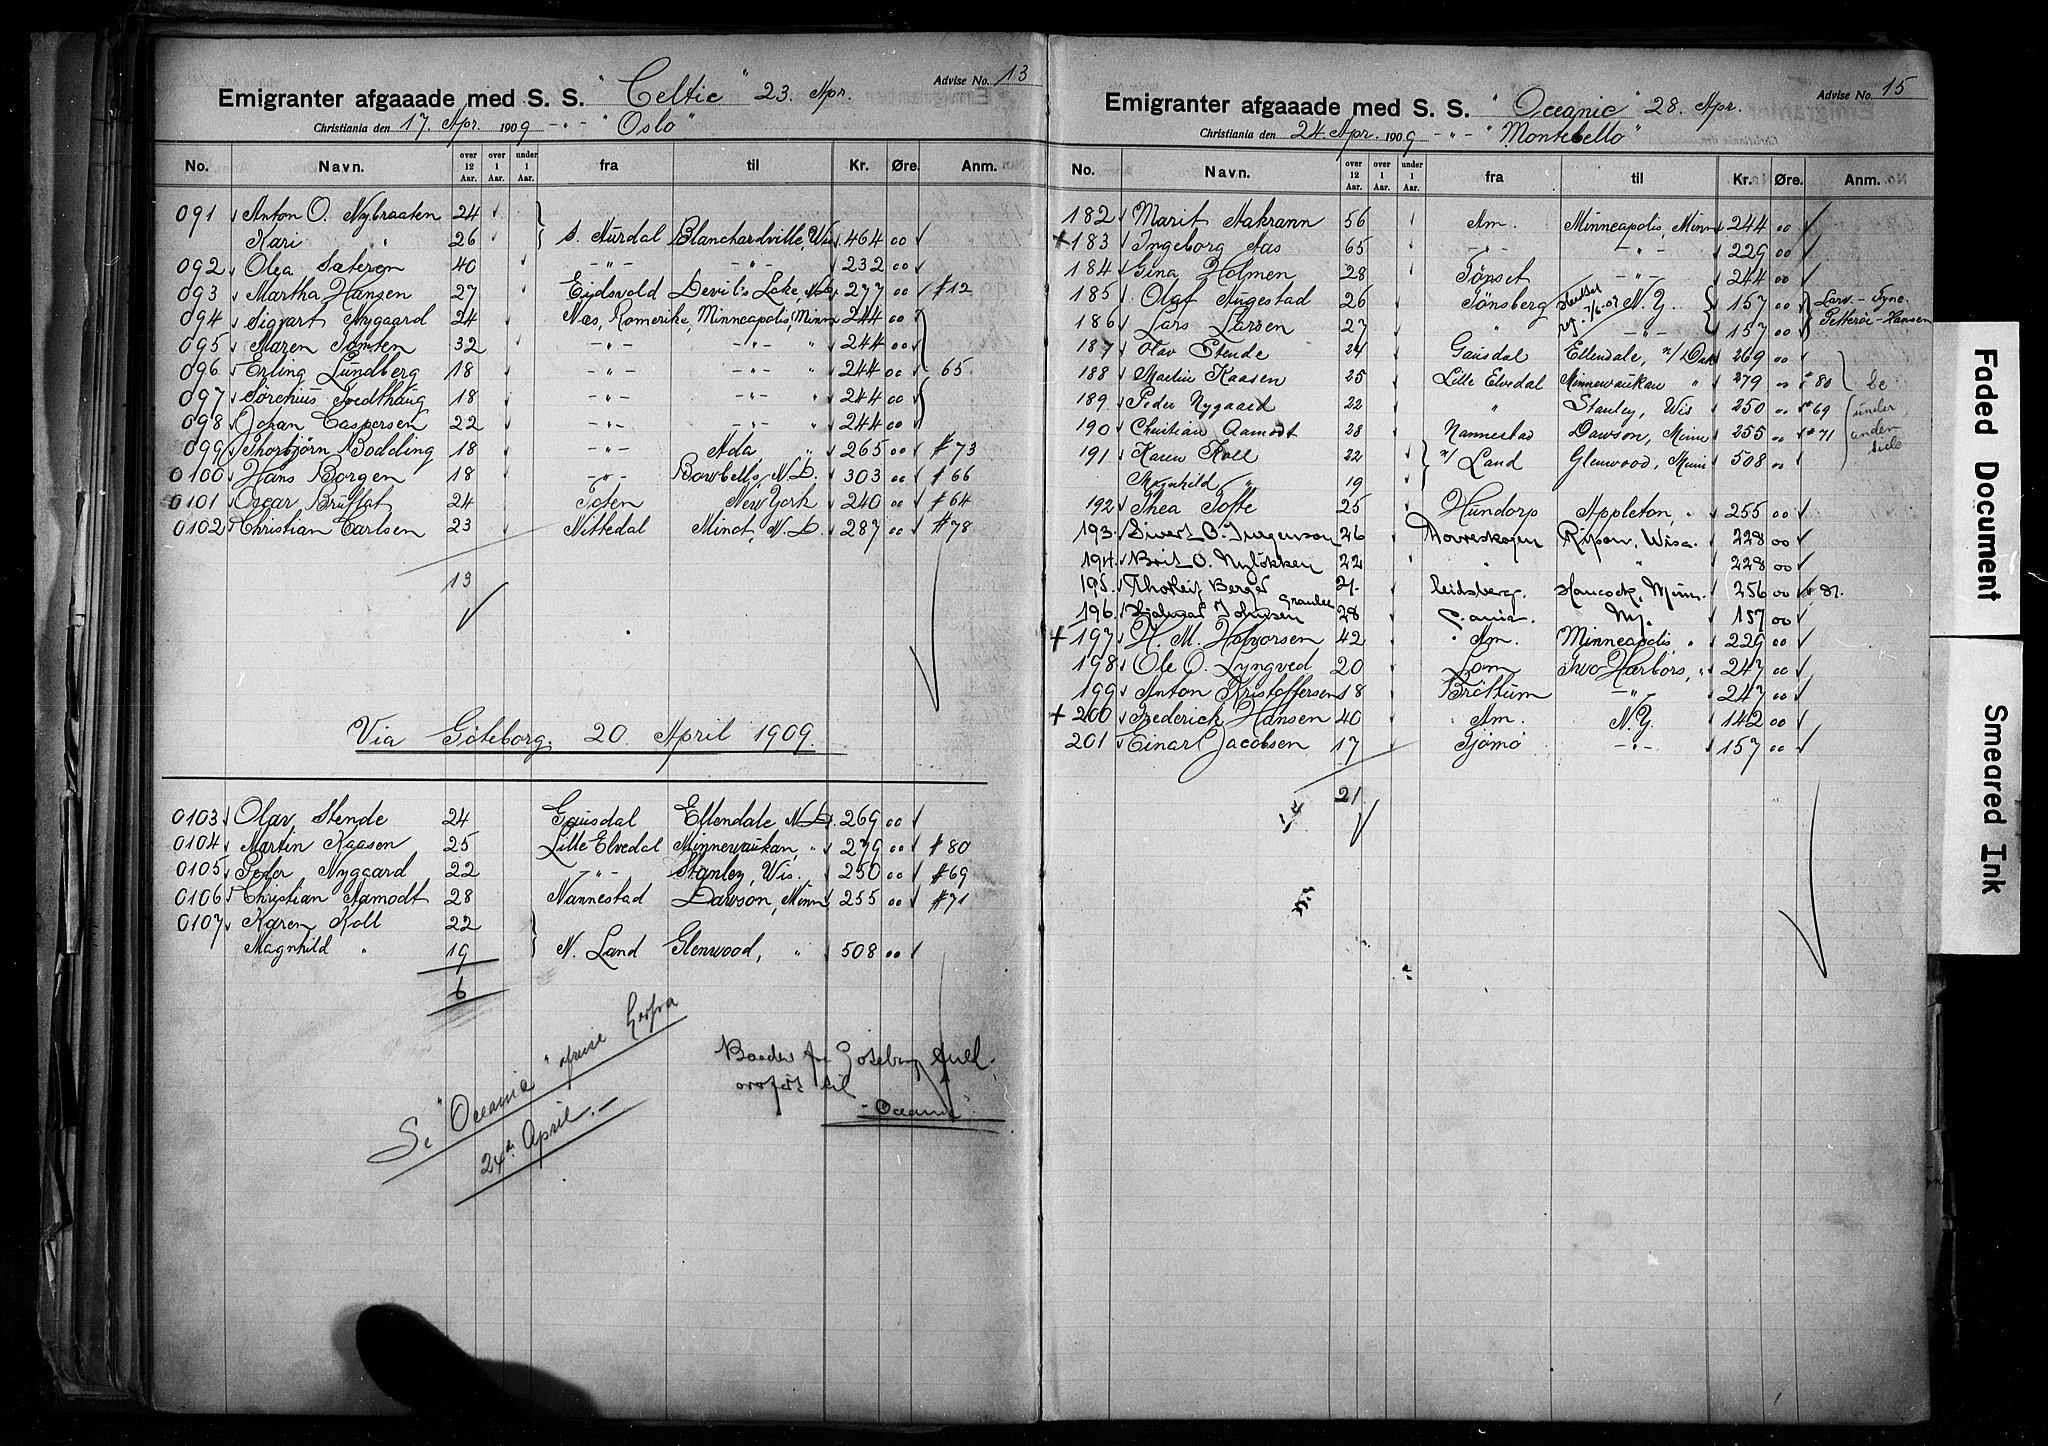 Advise No. 13
Emigranter afgaaade med S. S. "Celtic" 23. Apr.
Christiania den 17. Apr. 1909 -"- "Oslo"
No. Navn. over 12 Aar. over 1 Aar. under 1 Aar. fra til Kr. Øre. Anm.
091 Anton O. Nybraaten 24
Kari " 26 S. Aurdal Blanchardville, Wis 464 00
092 Olea Sæteren 40 -"- -"- 232 00
093 Martha Hansen 27 Eidsvold Devils Lake, N.D. 277 00 #12
094 Sigvart Nygaard 24 Næs, Romerike, Minneapolis, Minn 244 00
095 Maren Tomten 32 -"- -"- " 244 00
096 Erling Lundberg 18 -"- -"- " 244 00 65
097 Sørenius Tvedthaug 18 -"- -"- " 244 00
098 Johan Caspersen 22 -"- -"- " 244 00
099 Thorbjørn Bodding 18 -"- Ada, " 265 00 #73
0100 Hans Borgen 18 -"- Bowbells, N.D. 303 00 #66
0101 Oscar Brustat 24 Toten New York 240 00 #64
0102 Christian Carlsen 23 Nittedal Minot, N.D. 287 00 #78
13
Via Göteborg. 20. April 1909.
0103 Olav Stende 24 Gausdal Ellendale N.D. 269 00
0104 Martin Kaasen 25 Lille Elvedal Minnewaukan, " 279 00 #80
0105 Peder Nygaard 22 -"- Stanley, Wis. 250 00 #69
0106 Christian Aamodt 28 Nannestad Dawson, Minn 255 00 #71
0107 Karen Koll 22
Magnhild " 19 N. Land Glenwood, " 508 00
6
Se "Oceanic" afreise herfra
24de April.-
Baaden fra Göteborg fuld.
overført til
"Oceanic"
Advise No. 15
Emigranter afgaaade med S. S. "Oceanic" 28. Apr.
Christiania den 24. Apr. 1909 -"- "Montebello"
No. Navn. over 12 Aar. over 1 Aar. under 1 Aar. fra til Kr. Øre. Anm.
182 Marit Aakrann 56 Am. Minneapolis, Minn 244 00
+ 183 Ingeborg Aas 65 -"- -"- 229 00
184 Gina Holmen 28 Tönset -"- 244 00
185 Olaf Augestad 26 Tönsberg N.Y. 157 00 Larv. - Tyne.
186 Lars Larsen 27 " -"- 157 00 Petterøe-Hansen
187 Olav Stende 24 Gausdal Ellendale, n/Dak 269 00
188 Martin Kaasen 25 Lille Elvedal Minnewaukan " 279 00 #80 be
189 Peder Nygaard 22 " Stanley, Wis 250 00 #69 under
190 Christian Aamodt 28 Nannestad Dawson, Minn 255 00 #71
191 Karen Koll 22 n/ Land Glenwood, Minn 508 00
Magnhild " 19
192 Thea Tofte 25 Hundorp Appleton, " 255 00
193. Sivert O. Jurgenson 26 Dovreskogen Ripon, Wisc. 228 00
194. Brit O. Nylökken 22 " " 228 00
195. Thorleif Berger 21. Eidsberg. Hancock, Minn. 256 00
196. Hjalmar Johnsen 28 C.ania. Ny. 157 00
+ 197 H. M. Halvorsen 42 Am. Minneapolis, " 229 00
198 Ole O. Lyngved 20 Lom Two Harbors, " 247 00
199 Anton Kristoffersen 18 Bröttum -"- 247 00
+ 200 Frederick Hansen 40 Am. N.Y. 142 00
201 Einar Jacobsen 17 Tjömö -"- 157 00
21
Faded Document
Smeared Ink